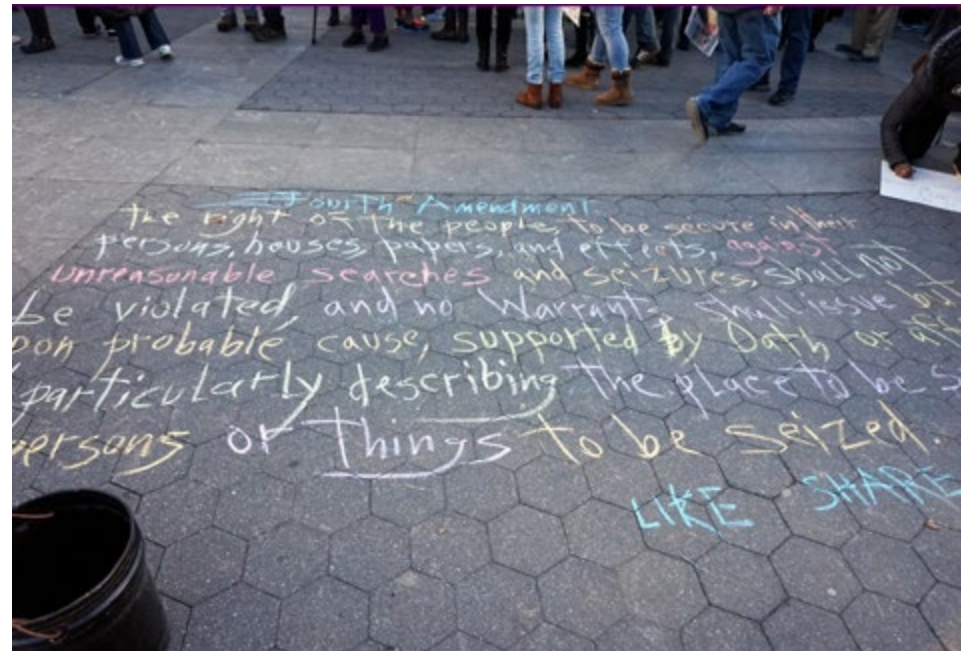 Fourth Amendment
the right of the people, to be secure in their
persons, houses, papers, and effects, against
unreasonable searches and seizures, shall not
be violated, and no Warrants shall issue but
pon probable cause, supported by Oath or aff
particularly describing the place to be s
persons or things to be seized.
LIKE SHARE